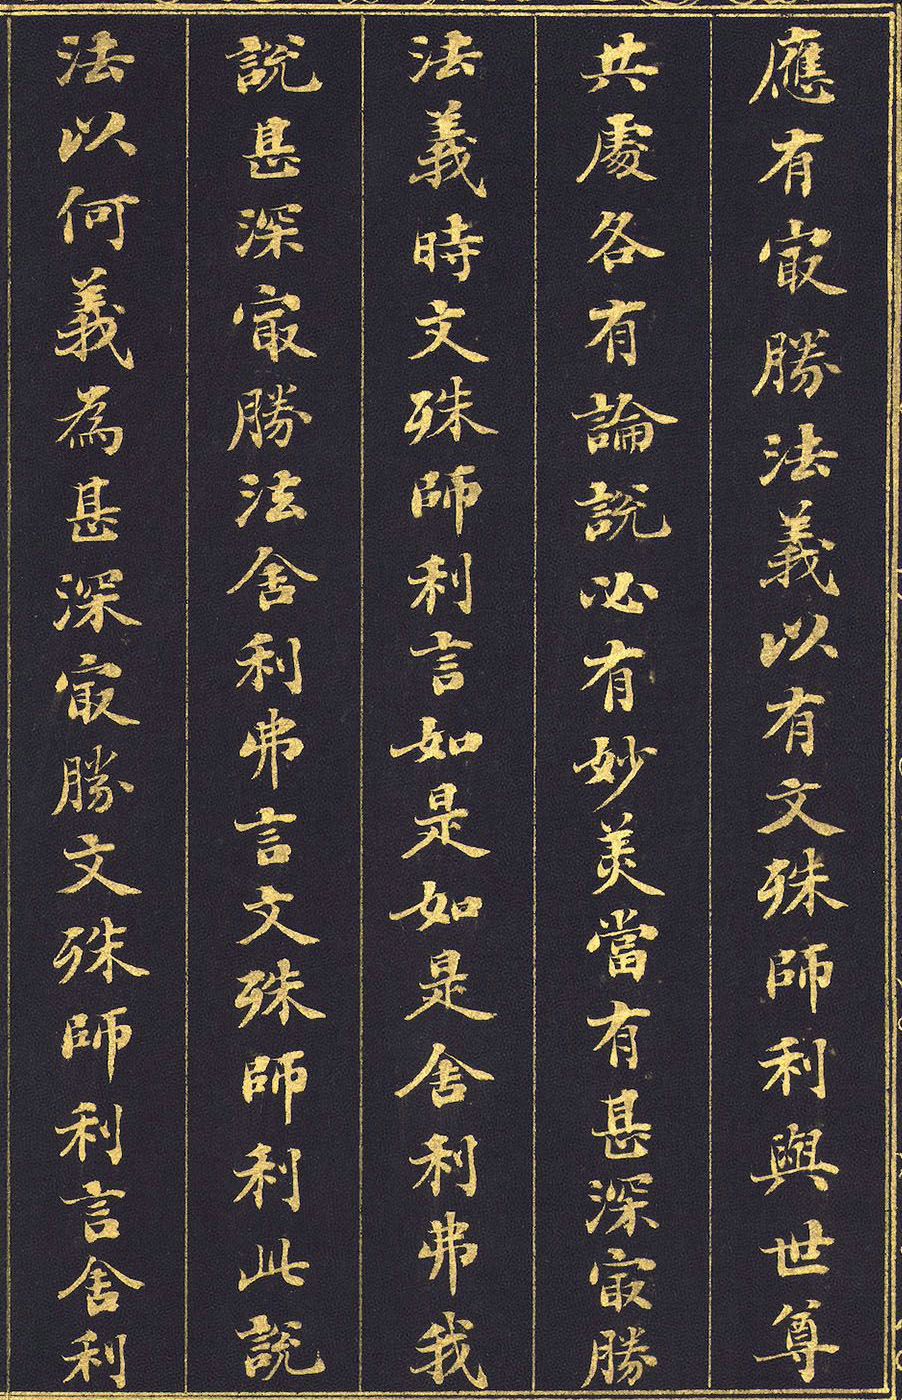 應有㝡勝法義以有文殊師利與世尊
共處各有論說必有妙美當有甚深㝡勝
法義時文殊師利言如是如是舍利弗我
說甚深㝡勝法舍利弗言文殊師利此說
法以何義為甚深㝡勝文殊師利言舍利